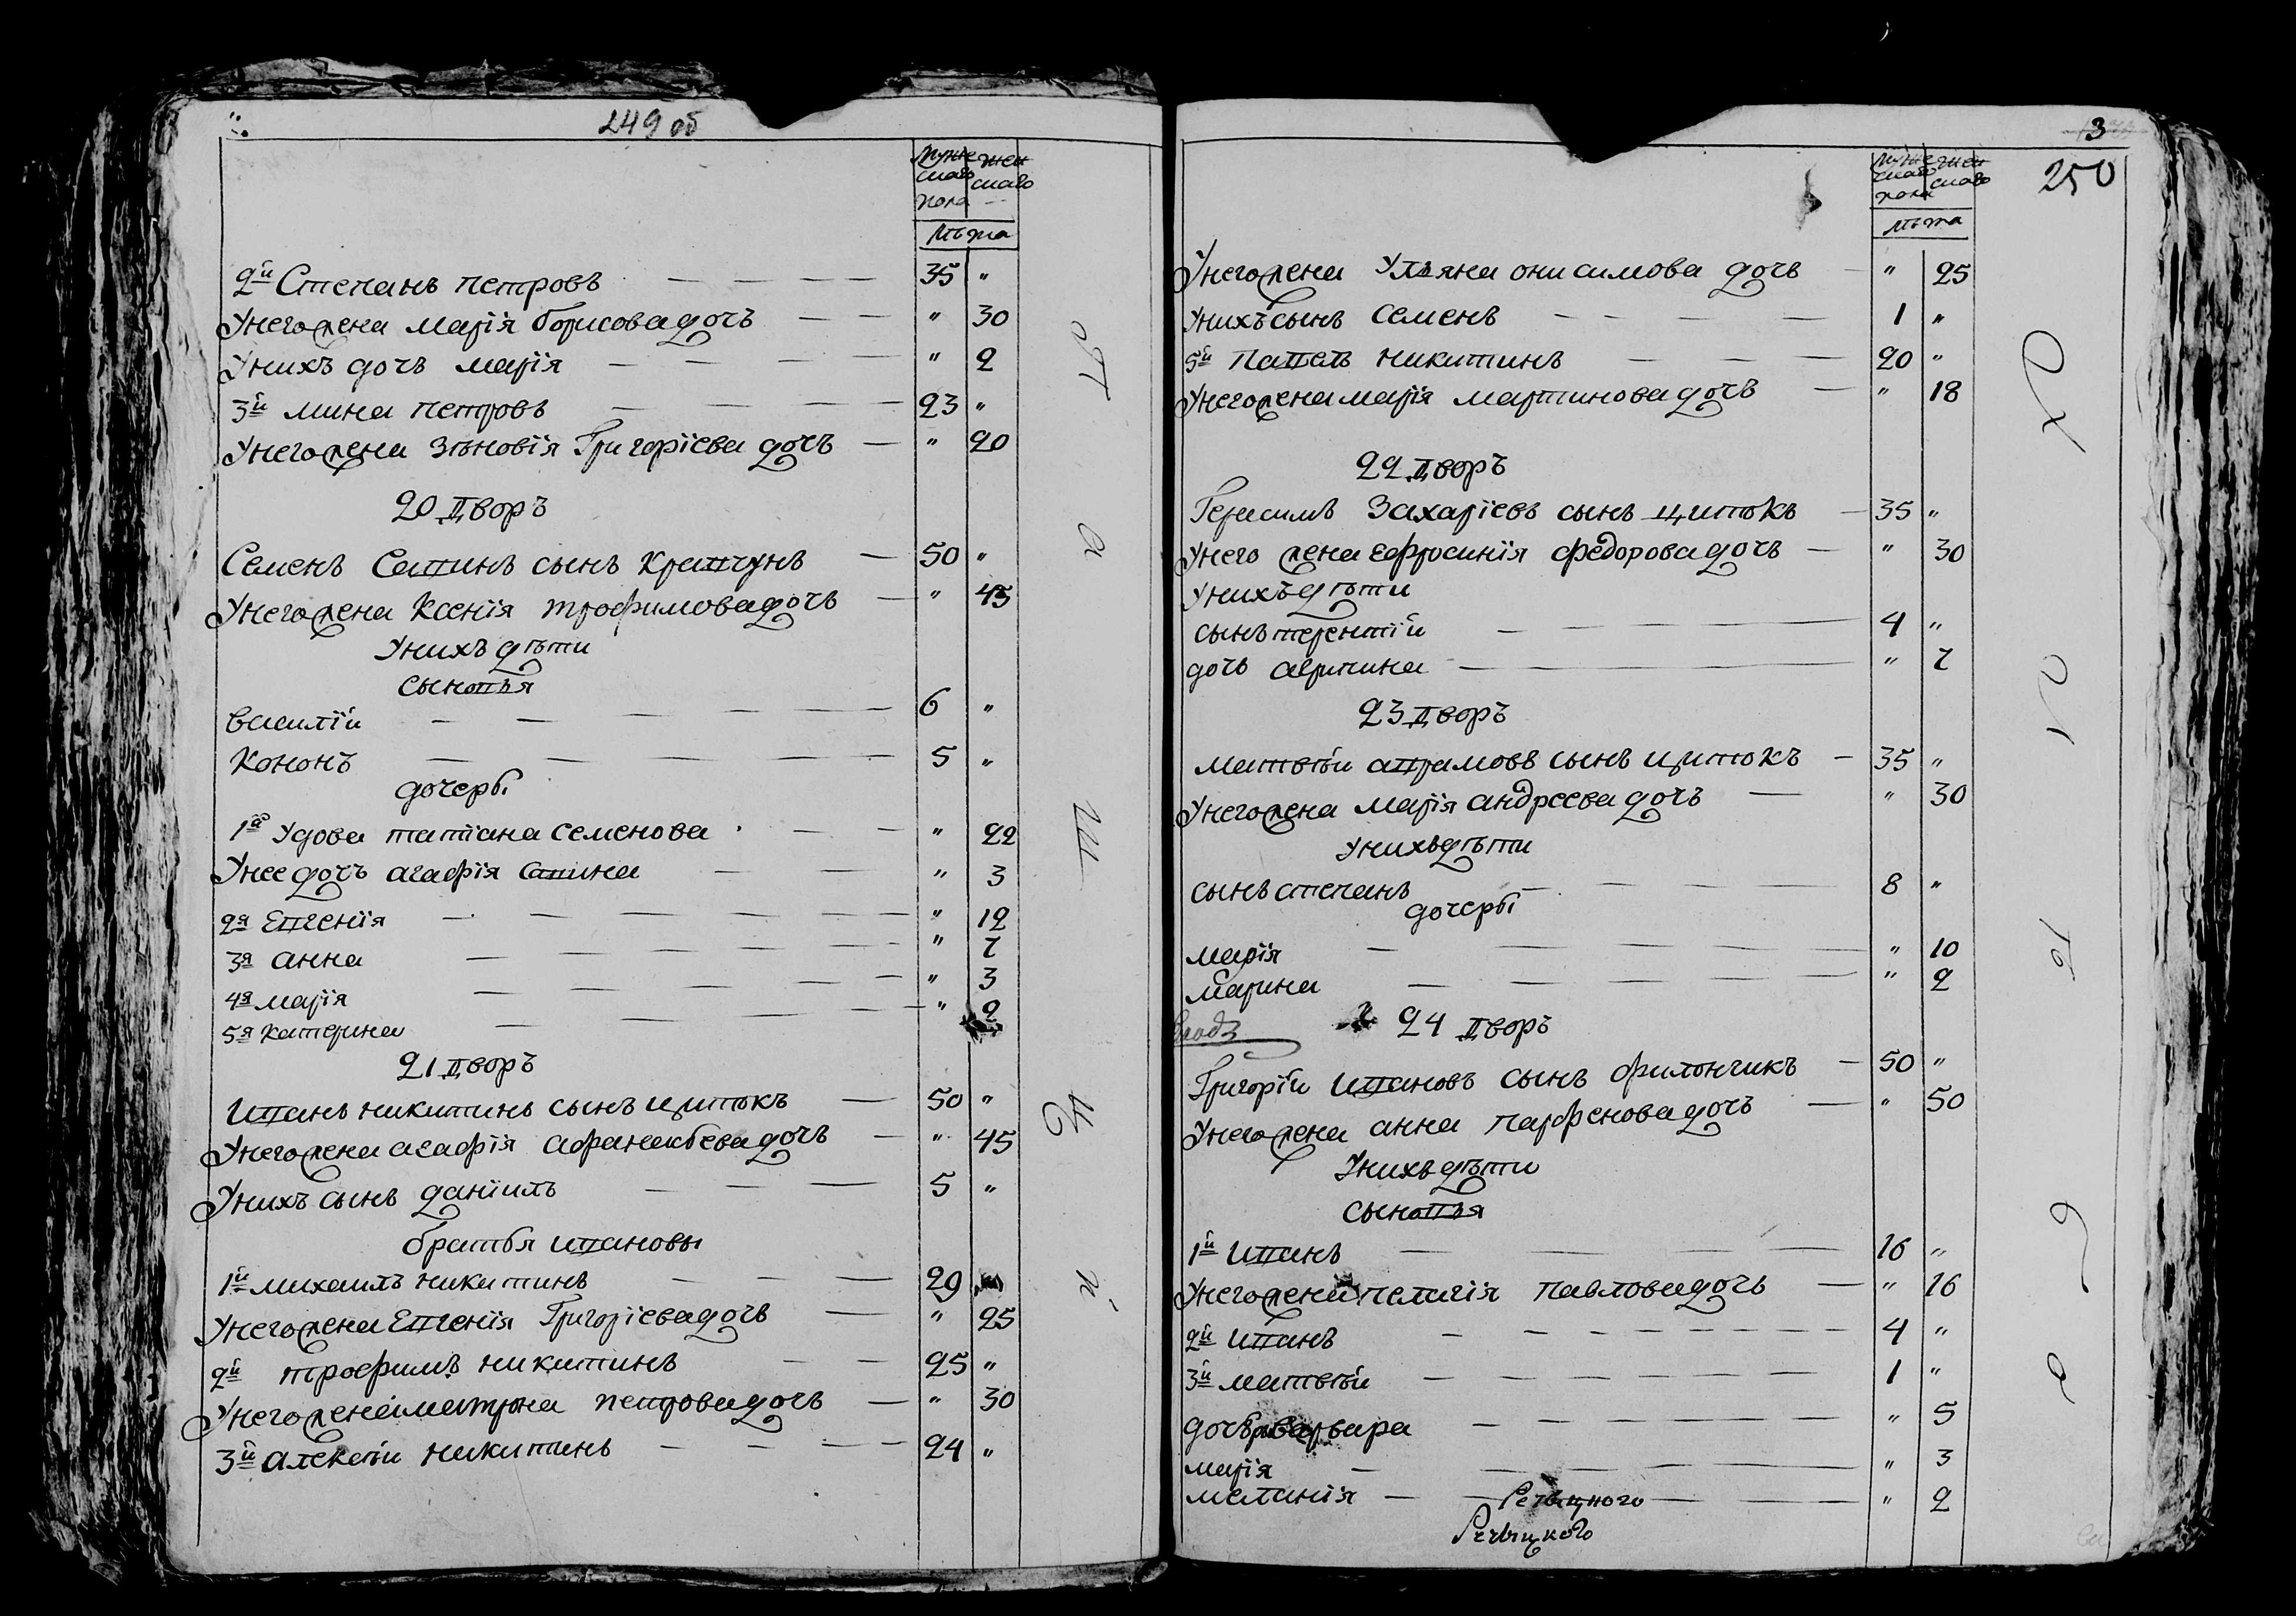 249 об
мужескаго пола женскаго
лѣта
2й Степанъ петровъ 35 "
Унего жена марія борисова дочъ " 30
Унихъ дочъ марія " 2
3й мина петровъ 23 "
Унего жена зѣновія Григоріева дочъ " 20
20 Дворъ
Семенъ Савинъ сынъ кравчунъ 50 "
Унего жена Ксенія трофимова дочъ " 45
Унихъ дѣти
сыновья
василій 6 "
Кононъ 5 "
дочери
1я удова татіана семенова " 22
Унее дочъ агафія савина " 3
2я Евгенія " 12
3я анна " 7
4я марія " 3
5я катерина " 2
21 дворъ
иванъ никитинъ сынъ цитокъ 50 "
Унего жена агафія афанасьева дочъ " 45
Унихъ сынъ даніилъ 5 "
братья ивановы
1й михаилъ никитинъ 29
Унего жена Евгенія Григоріева дочъ " 25
2й трофимъ никитинъ 25 "
Унего жена матрона петрова дочъ " 30
3й алексѣй никитинъ 24 "
3
250
мужескаго пола женскаго
лѣта
Унего жена Ульяна онисимова дочъ " 25
Унихъ сынъ семенъ 1 "
5й павелъ никитинъ 20 "
Унего жена марія мартинова дочъ " 18
22 дворъ
Герасимъ Захаріевъ сынъ цитокъ 35 "
Унего жена ефросинія федорова дочъ " 30
Унихъ дѣти
сынъ терентій 4 "
дочъ агрипина " 7
23 дворъ
матвѣй аврамовъ сынъ цитокъ 35 "
Унего жена марія андреева дочъ " 30
Унихъ дѣти
сынъ степанъ 8 "
дочери
марія " 10
марина " 2
24 дворъ
Григорій ивановъ сынъ филончикъ 50 "
Унего жена анна парфенова дочъ " 50
Унихъ дѣти
сыновья
1й иванъ 16 "
Унего жена пелагія павлова дочъ " 16
2й иванъ 4 "
3й матвѣй 1 "
дочъ варвара " 5
марія " 3
меланія " 2
Речицкого